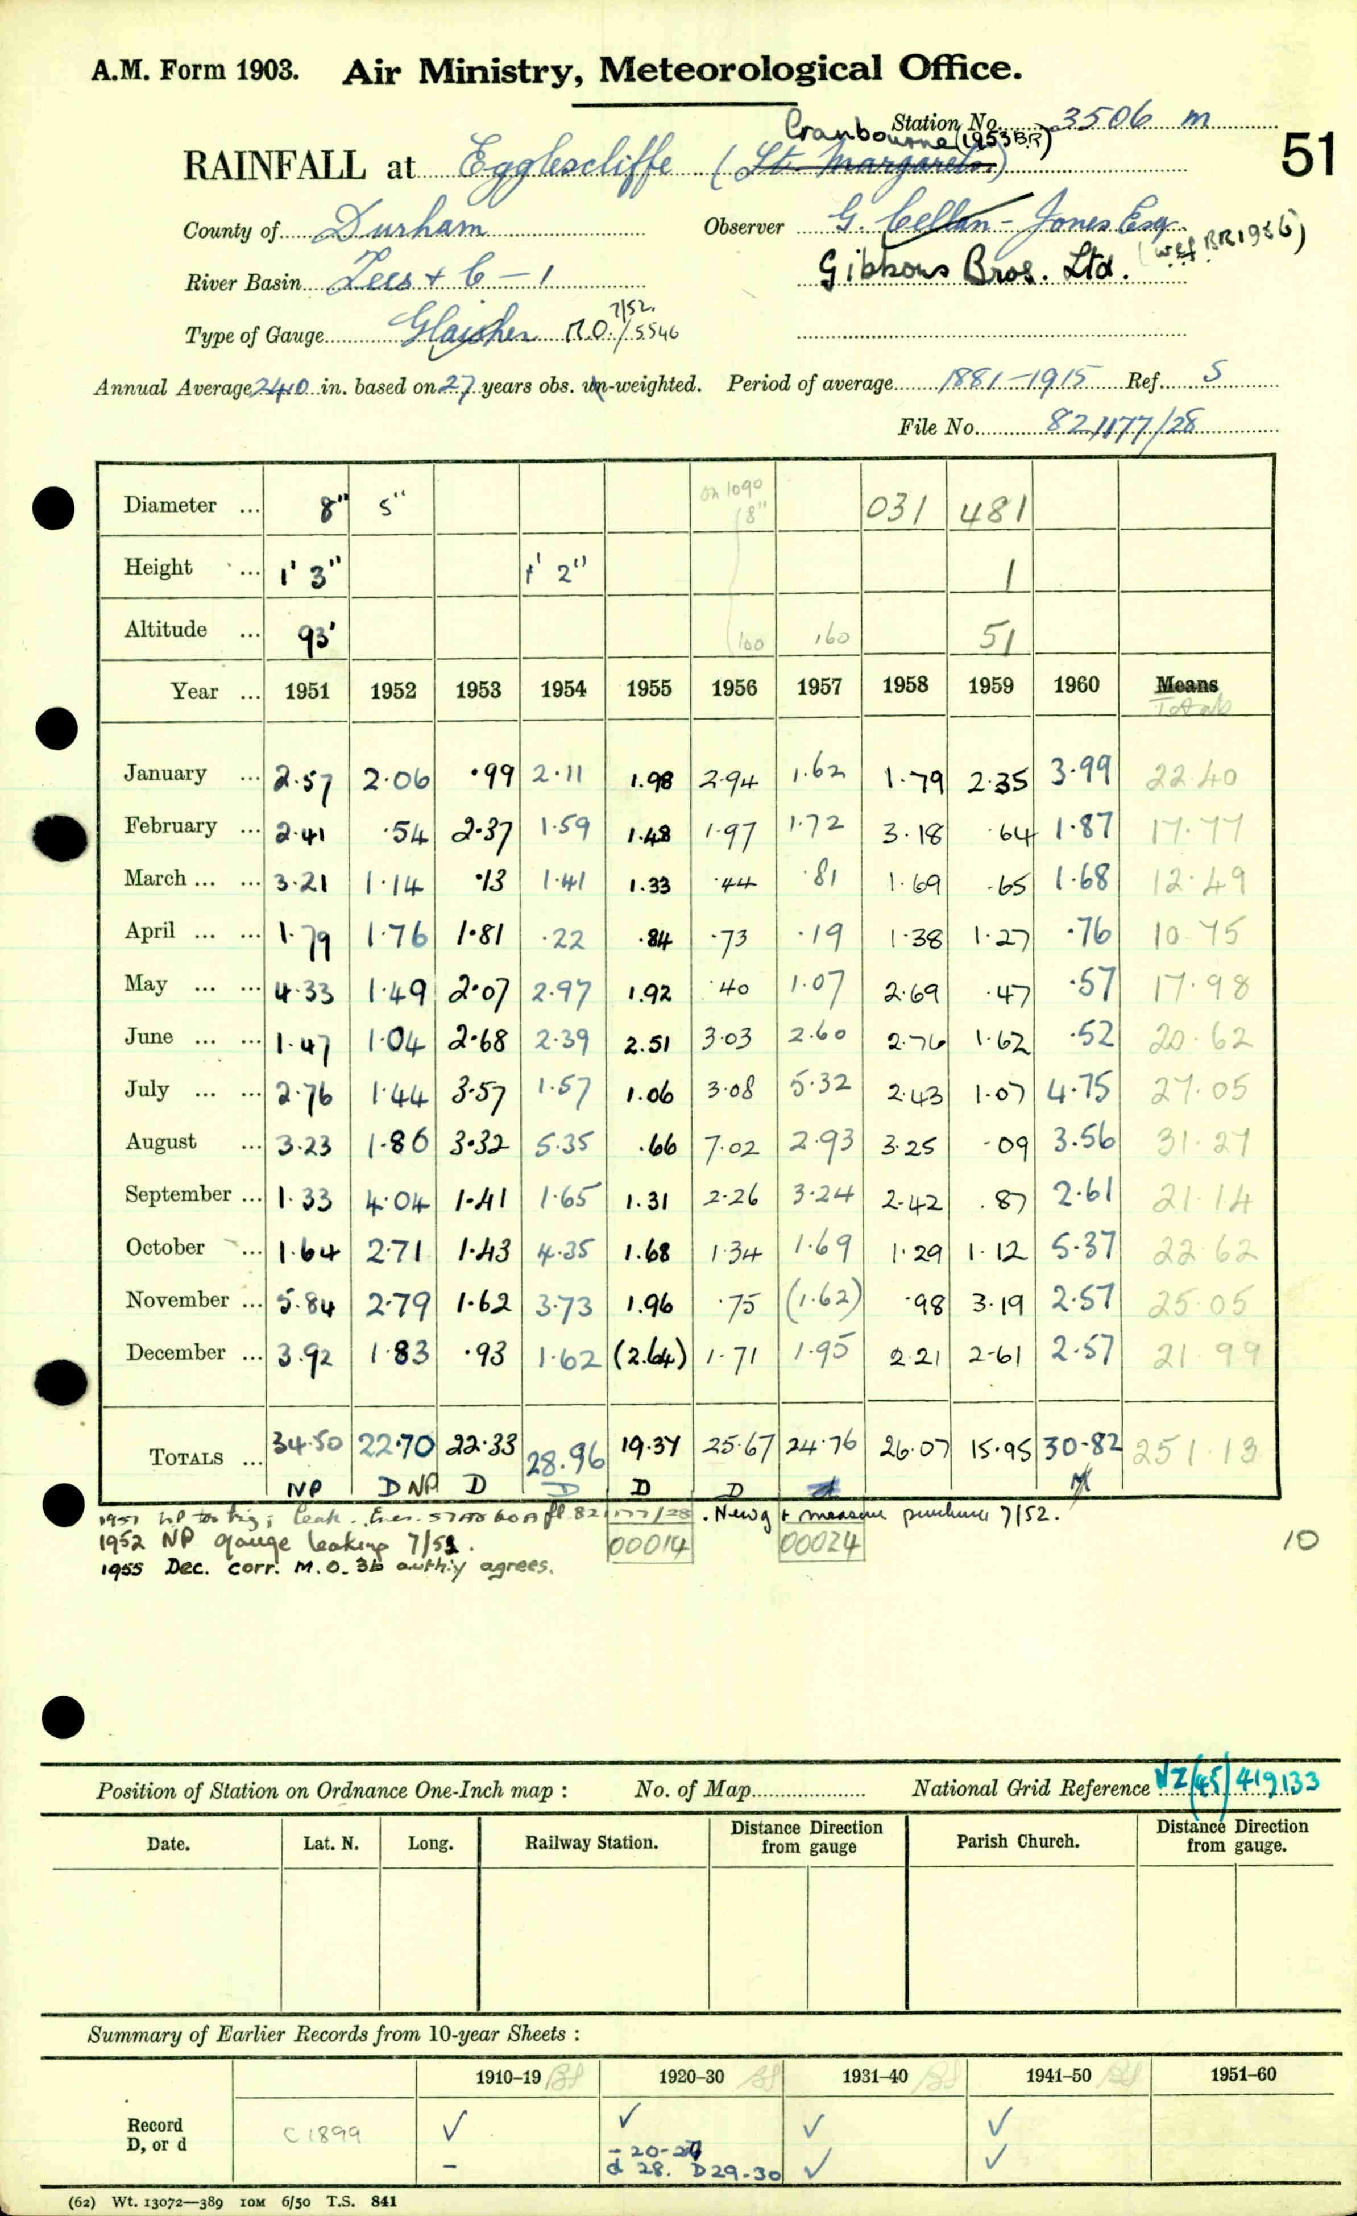 A.M. Form 1903. Air Ministry, Meteorological Office.
Station No. 3506 m
Cranbourne (1953 BR)
51
RAINFALL at Egglescliffe (St. Margarets)
County of Durham Observer G. Cellan-Jones Esq.
Gibbons Bros. Ltd. (wef BR 1956)
River Basin Tees + C - 1
Type of Gauge Glaisher M.O. 7/52. /5546
Annual Average 24.0 in. based on 27 years obs. un-weighted. Period of average 1881-1915 Ref. S
File No. 82/177/28
Diameter ... 8" 5" on 1090 (8" 031 481
Height ... 1' 3" 1' 2" 1
Altitude ... 93' (100 160 51
Year ... 1951 1952 1953 1954 1955 1956 1957 1958 1959 1960 Means
Totals
January ... 2.57 2.06 .99 2.11 1.98 2.94 1.62 1.79 2.35 3.99 22.40
February ... 2.41 .54 2.37 1.59 1.48 1.97 1.72 3.18 .64 1.87 17.77
March ... ... 3.21 1.14 .13 1.41 1.33 .44 .81 1.69 .65 1.68 12.49
April ... ... 1.79 1.76 1.81 .22 .84 .73 .19 1.38 1.27 .76 10.75
May ... ... 4.33 1.49 2.07 2.97 1.92 .40 1.07 2.69 .47 .57 17.98
June ... ... 1.47 1.04 2.68 2.39 2.51 3.03 2.60 2.76 1.62 .52 20.62
July ... ... 2.76 1.44 3.57 1.57 1.06 3.08 5.32 2.43 1.07 4.75 27.05
August ... 3.23 1.86 3.32 5.35 .66 7.02 2.93 3.25 .09 3.56 31.27
September ... 1.33 4.04 1.41 1.65 1.31 2.26 3.24 2.42 .87 2.61 21.14
October ... 1.64 2.71 1.43 4.35 1.68 1.34 1.69 1.29 1.12 5.37 22.62
November ... 5.84 2.79 1.62 3.73 1.96 .75 (1.62) .98 3.19 2.57 25.05
December ... 3.92 1.83 .93 1.62 (2.64) 1.71 1.95 2.21 2.61 2.57 21.99
TOTALS ... 34.50 22.70 22.33 28.96 19.37 25.67 24.76 26.07 15.95 30.82 251.13
NP D NP D D D D d
1951 NP too big; leak. 82/177/28. New g + measure purchased 7/52.
1952 NP gauge leaking 7/52. 00014 00024 10
1955 Dec. corr. M.O. 3b auth'y agrees.
Position of Station on Ordnance One-Inch map : No. of Map National Grid Reference NZ (45) 419133
Date. Lat. N. Long. Railway Station. Distance from gauge Direction Parish Church. Distance from gauge. Direction
Summary of Earlier Records from 10-year Sheets :
1910-19 1920-30 1931-40 1941-50 1951-60
Record D, or d C 1899 ✓ ✓ ✓ ✓
- - 20-27 ✓ ✓
d 28. D 29-30
(62) Wt. 13072—389 10M 6/50 T.S. 841